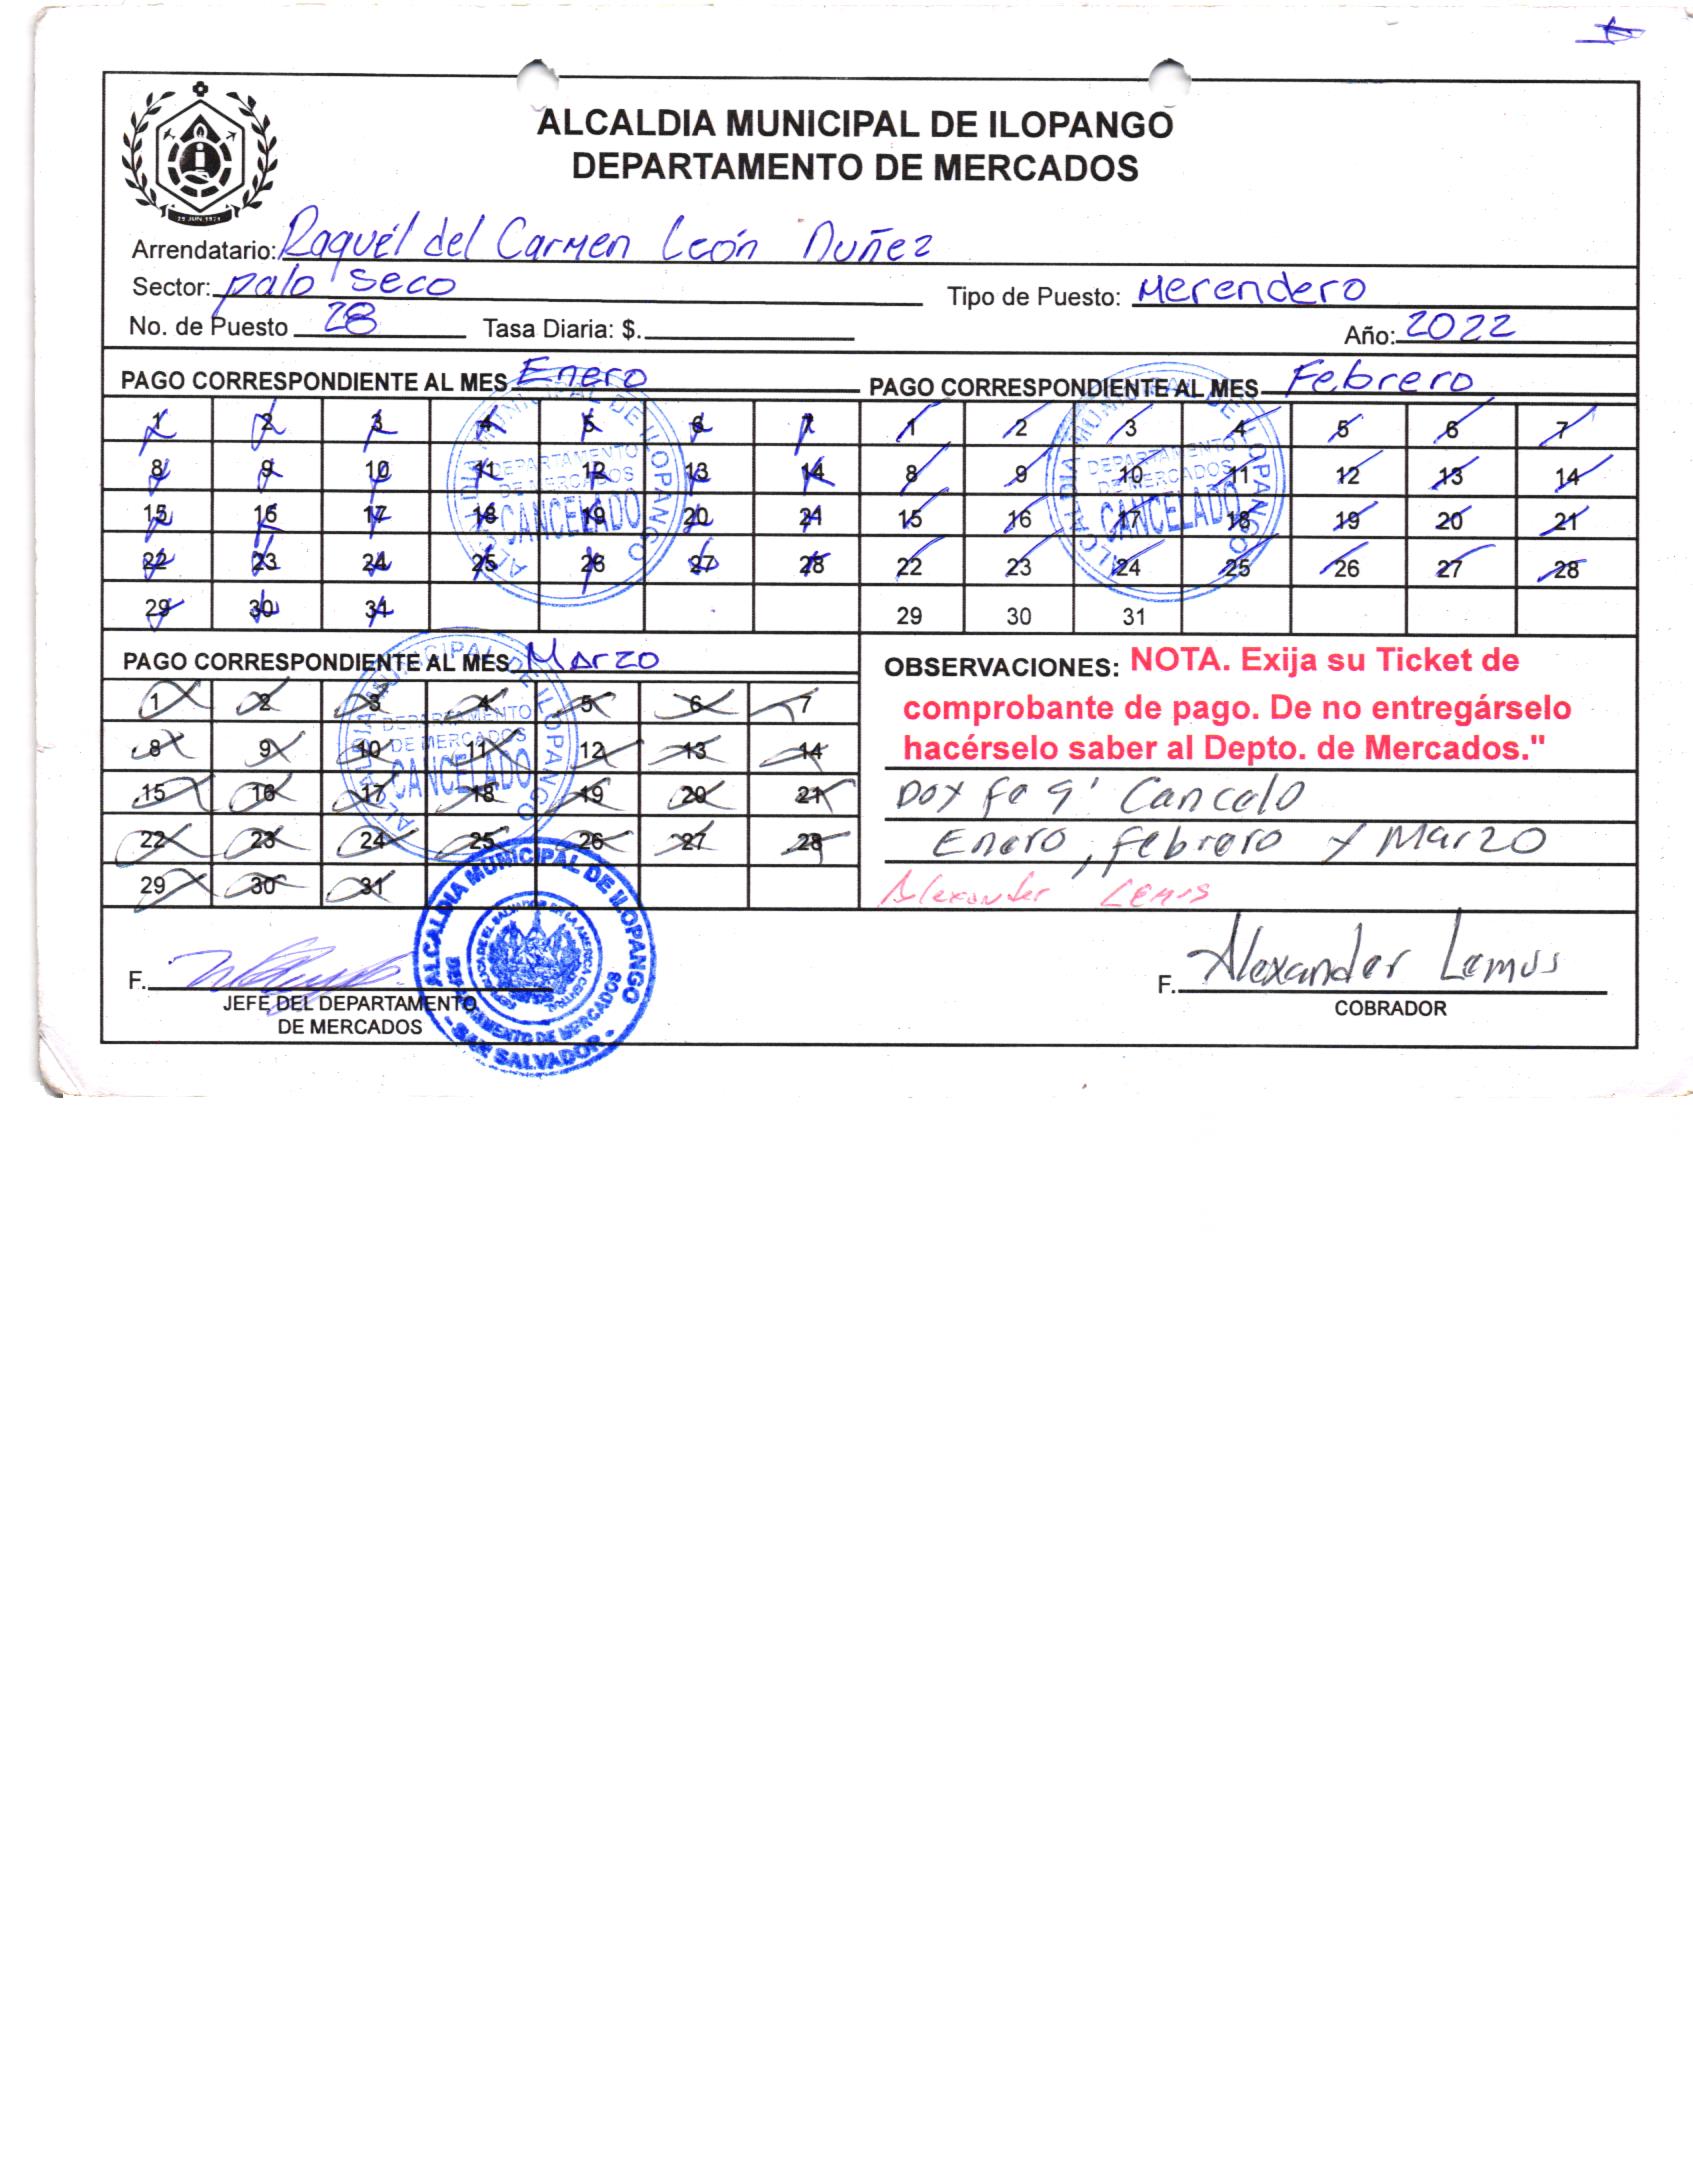 ALCALDIA MUNICIPAL DE ILOPANGO
DEPARTAMENTO DE MERCADOS
25 JUN. 1971
Arrendatario: Raquél del Carmen León Nuñez
Sector: palo seco
Tipo de Puesto: Merendero
No. de Puesto 28 Tasa Diaria: $.
Año: 2022
PAGO CORRESPONDIENTE AL MES Enero
1 2 3 4 5 6 7
8 9 10 11 12 13 14
15 16 17 18 19 20 21
22 23 24 25 26 27 28
29 30 31
ALCALDIA MUNICIPAL DE ILOPANGO
DEPARTAMENTO
DE MERCADOS
CANCELADO
PAGO CORRESPONDIENTE AL MES Febrero
1 2 3 4 5 6 7
8 9 10 11 12 13 14
15 16 17 18 19 20 21
22 23 24 25 26 27 28
29 30 31
ALCALDIA MUNICIPAL DE ILOPANGO
DEPARTAMENTO
DE MERCADOS
CANCELADO
PAGO CORRESPONDIENTE AL MES Marzo
1 2 3 4 5 6 7
8 9 10 11 12 13 14
15 16 17 18 19 20 21
22 23 24 25 26 27 28
29 30 31
ALCALDIA MUNICIPAL DE ILOPANGO
DEPARTAMENTO
DE MERCADOS
CANCELADO
OBSERVACIONES: NOTA. Exija su Ticket de
comprobante de pago. De no entregárselo
hacérselo saber al Depto. de Mercados."
Doy fe q' Cancelo
Enero, febrero y Marzo
Alexander Lemus
F.
JEFE DEL DEPARTAMENTO
DE MERCADOS
ALCALDIA MUNICIPAL DE ILOPANGO
DEPARTAMENTO DE MERCADOS
- SAN SALVADOR -
F. Alexander Lemus
COBRADOR